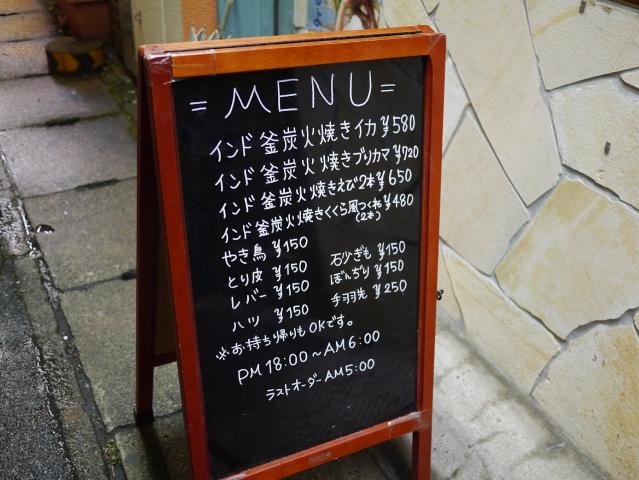 = MENU =
インド釜炭火焼きイカ ¥580
インド釜炭火焼きブリカマ ¥720
インド釜炭火焼きえび2本 ¥650
インド釜炭火焼きくくら風つくね ¥480
(2本)
やき鳥 ¥150 石少ぎも ¥150
とり皮 ¥150 ぼんぢり ¥150
レバー ¥150 手羽先 ¥250
ハツ ¥150
※お持ち帰りもOKです。
PM 18:00～AM 6:00
ラストオーダー AM 5:00